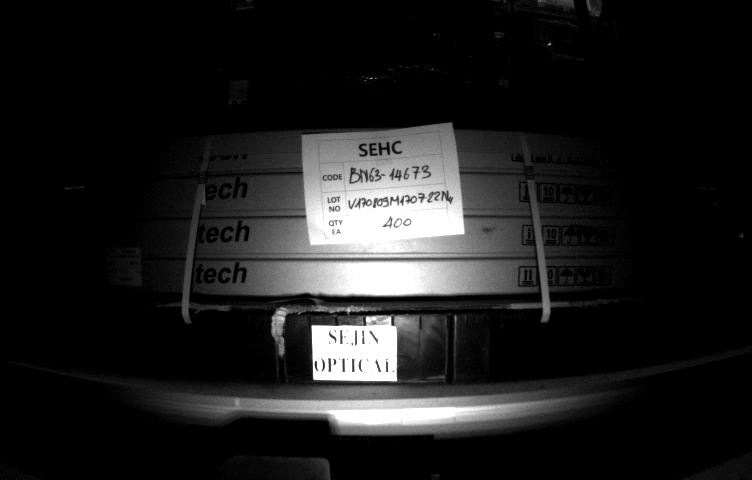 SEHC
CODE BN63-14673
LOT NO V170809M1707-22N4
QTY EA 400
tech
tech
tech
SEJIN
OPTICAL